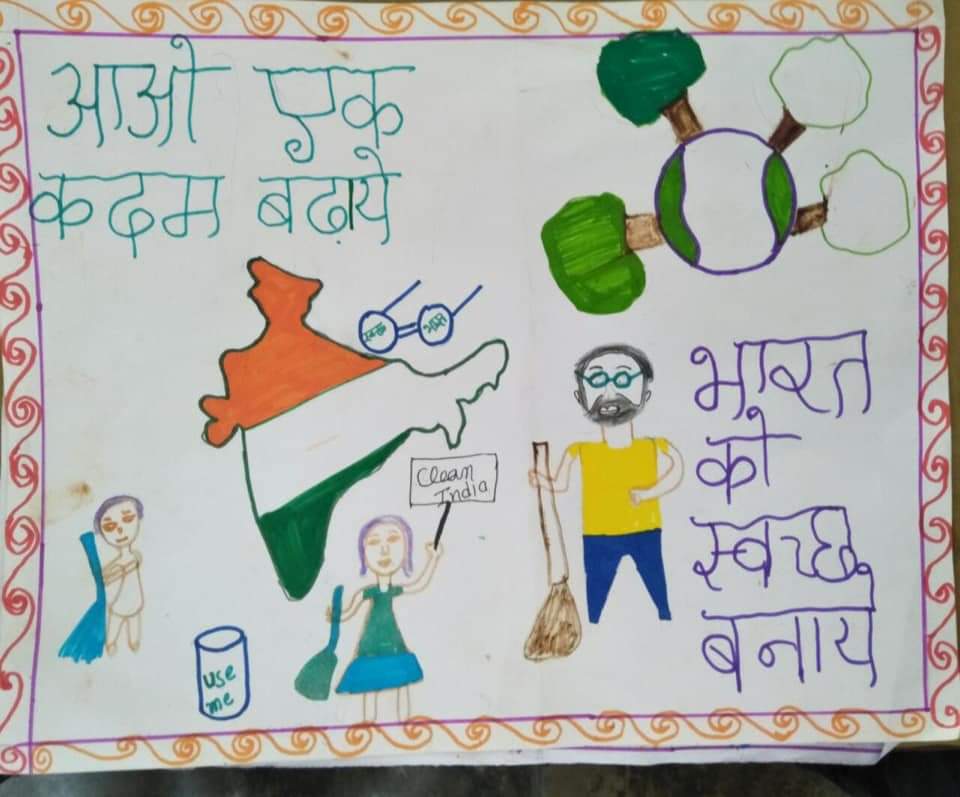 आओ एक
कदम बढ़ाये
स्वच्छ भारत
Clean
India
use
me
भारत
को
स्वच्छ
बनाये